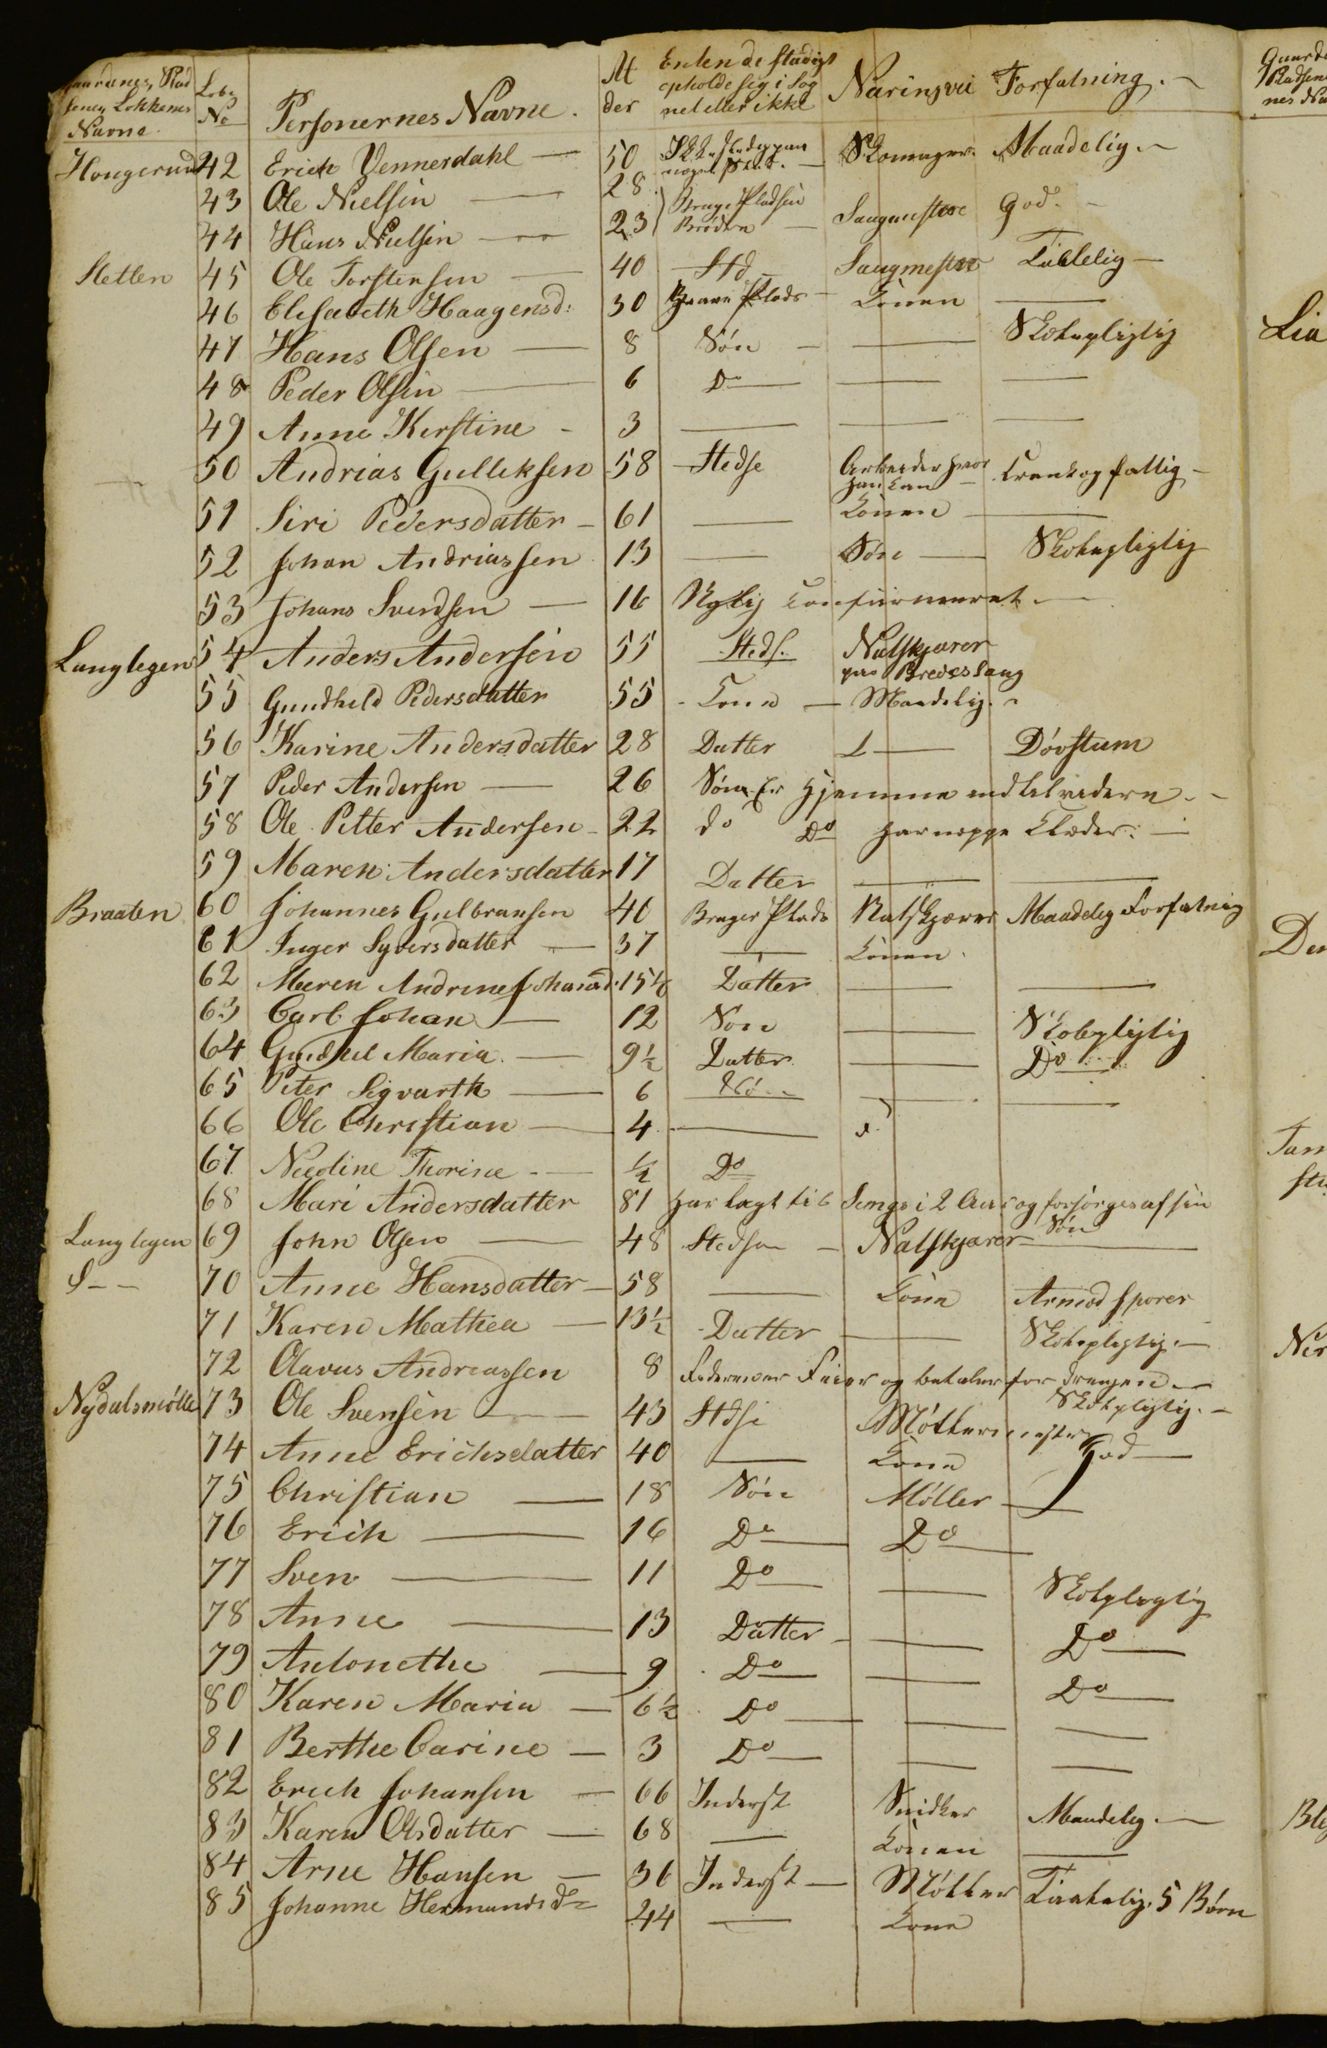 Navne Løbe No Personernes Navne. Al der Enten de stadigt opholde sig i Sognet eller ikke Næringsvei Forfatning.
Hougerund 42 Erich Vennerdahl 50 Skomager Maadelig.
43 Ole Nielsen 28 Bruge Pladsen
44 Hans Nielsen 23 Brødre Saugmestere God.
Sletten 45 Ole Torstensen 40 Std Saugmester Taalelig
46 Elisabeth Haagensd: 30 Plads Konen
47 Hans Olsen 8 Søn Skolepligtig
48 Peder Olsen 6 Do
49 Anne Kirstine 3
50 Andrias Gulleksen 58 Stedse Arbeider hvor han kan Krank og fattig
51 Siri Pedersdatter 61 Konen
52 Johan Andriassen 13 Søn Skolepligtig
53 Johans Svendsen 16 Nylig Confirmeret
Langlegen 54 Anders Andersen 55 Steds. Natskjærer paa Bredesaug
55 Gundhild Pedersdatter 55 Kone Maadelig.
56 Karine Andersdatter 28 Datter Døvstum
57 Peder Andersen 26 Søn Er hjemme indtil videre
58 Ole Petter Andersen 22 do Do har neppe Klæder.
59 Maren Andersdatter 17 Datter
Braaten 60 Johannes Gulbransen 40 Bruger Plads Natskjærer Maadelig Forfatning
61 Inger Syversdatter 37 Konen.
62 Maren Andrine Johansd. 15½ Datter
63 Carl Johan 12 Søn Skolepligtig
64 Gundhil Maria 9½ Datter Do
65 Peter Sigvarth 6 Søn
66 Ole Christian 4
67 Nicoline Thorine ½ Do
68 Mari Andersdatter 81 har lagt til Sengs i 2 Aar og forsørges af sin Søn
Langlegen 69 John Olsen 48 Stedse Natskjærer
70 Anne Hansdatter 58 Kone Armod sporer
71 Karen Mathea 13½ Datter Skolepligtig.
72 Olavus Andreassen 8 Faderen er Feier og betaler for Drengen Skolepligtig.
Nydalsmølle 73 Ole Svensen 43 Stdse Møllermester God
74 Anne Erichsdatter 40 Kone
75 Christian 18 Søn Møller
76 Erich 16 Do Do
77 Sven 11 Do Skolepligtig
78 Anne 13 Datter Do
79 Antonethe 9 Do Do
80 Karen Maria 6½ Do
81 Berthe Carine 3 Do
82 Erich Johansen 66 Inderst Snidker Maadelig.
83 Karen Olsdatter 68 Konen
84 Arne Hansen 36 Inderst Møller Taalelig. 5 Børn
85 Johanne Hermansd 44 Kone
Lia